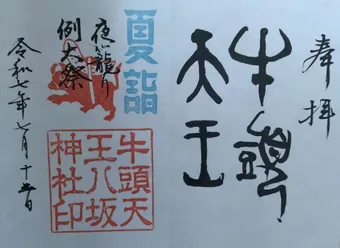 奉拝
牛頭
天王
夏詣
夜籠り
例大祭
牛頭天
王八坂
神社印
令和七年七月十五日